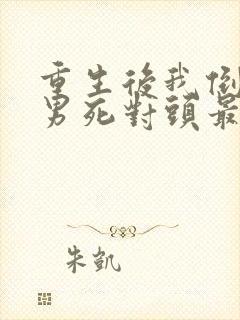 重生後我倒
男死對頭最
朱凱